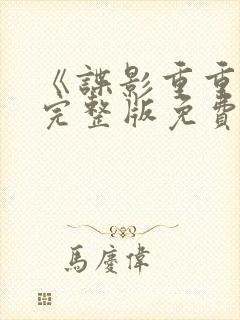 《諜影重重
完整版免費
馬慶偉